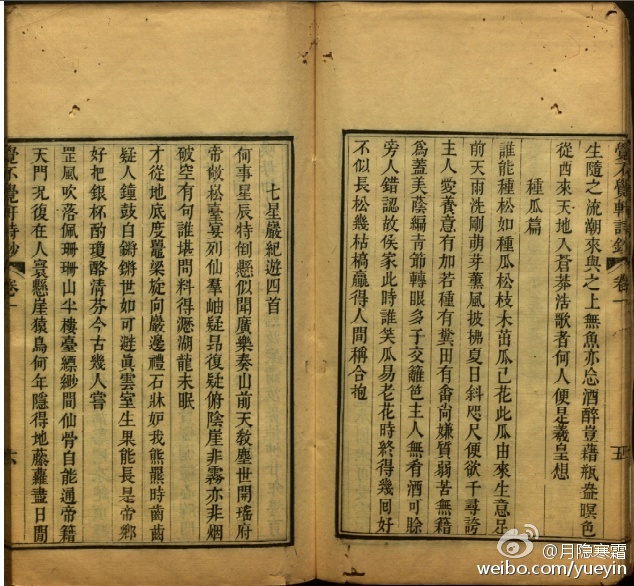 覺不覺軒詩鈔 卷一
生隨之流潮來與之上無魚亦忘酒醉豈藉瓶盎暝色
從西來天地入蒼莽浩歌者何人便是羲皇想
種瓜篇
誰能種松如種瓜松枝未茁瓜已花此瓜由來生意足
前天雨洗剛萌芽薰風披拂夏日斜咫尺便欲千尋誇
主人愛養意有加若種有糞田有畬尚嫌質弱苦無藉
為蓋美蔭編青節轉眼多子交籬笆主人無肴酒可賒
旁人錯認故侯家此時誰笑瓜易老花時終得幾回好
不似長松幾枯槁贏得人間稱合抱
五
七星巖紀遊四首
何事星辰特倒懸似開廣樂奏山前天教塵世開瑤府
帝敞松臺宴列仙羣岫疑昴復疑俯陰崖非霧亦非烟
破空有句誰堪問料得瀝湖龍未眠
才從地底度鼉梁旋向巖邊禮石牀妒我熊羆時齒齒
疑人鐘鼓自鏘鏘世如可避眞雲室生果能長是帝鄉
好把銀杯酌瓊酪清芬今古幾人嘗
罡風吹落佩珊珊山半樓臺縹緲間仙骨自能通帝籍
天門况復在人寰懸崖猿鳥何年隱得地藤蘿盡日閒
覺不覺軒詩鈔 卷一
六
@月隐寒霜
weibo.com/yueyin